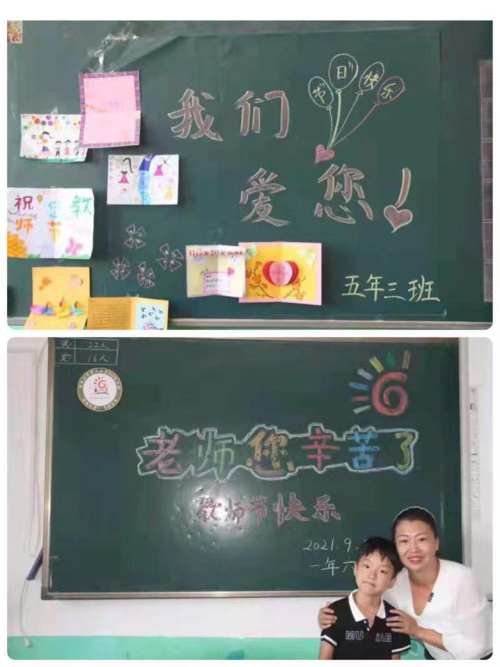 节日快乐
我们
爱您！
祝您教
师节
五年三班
男 22人
女 16人
老师您辛苦了
教师节快乐
2021.9.
一年六